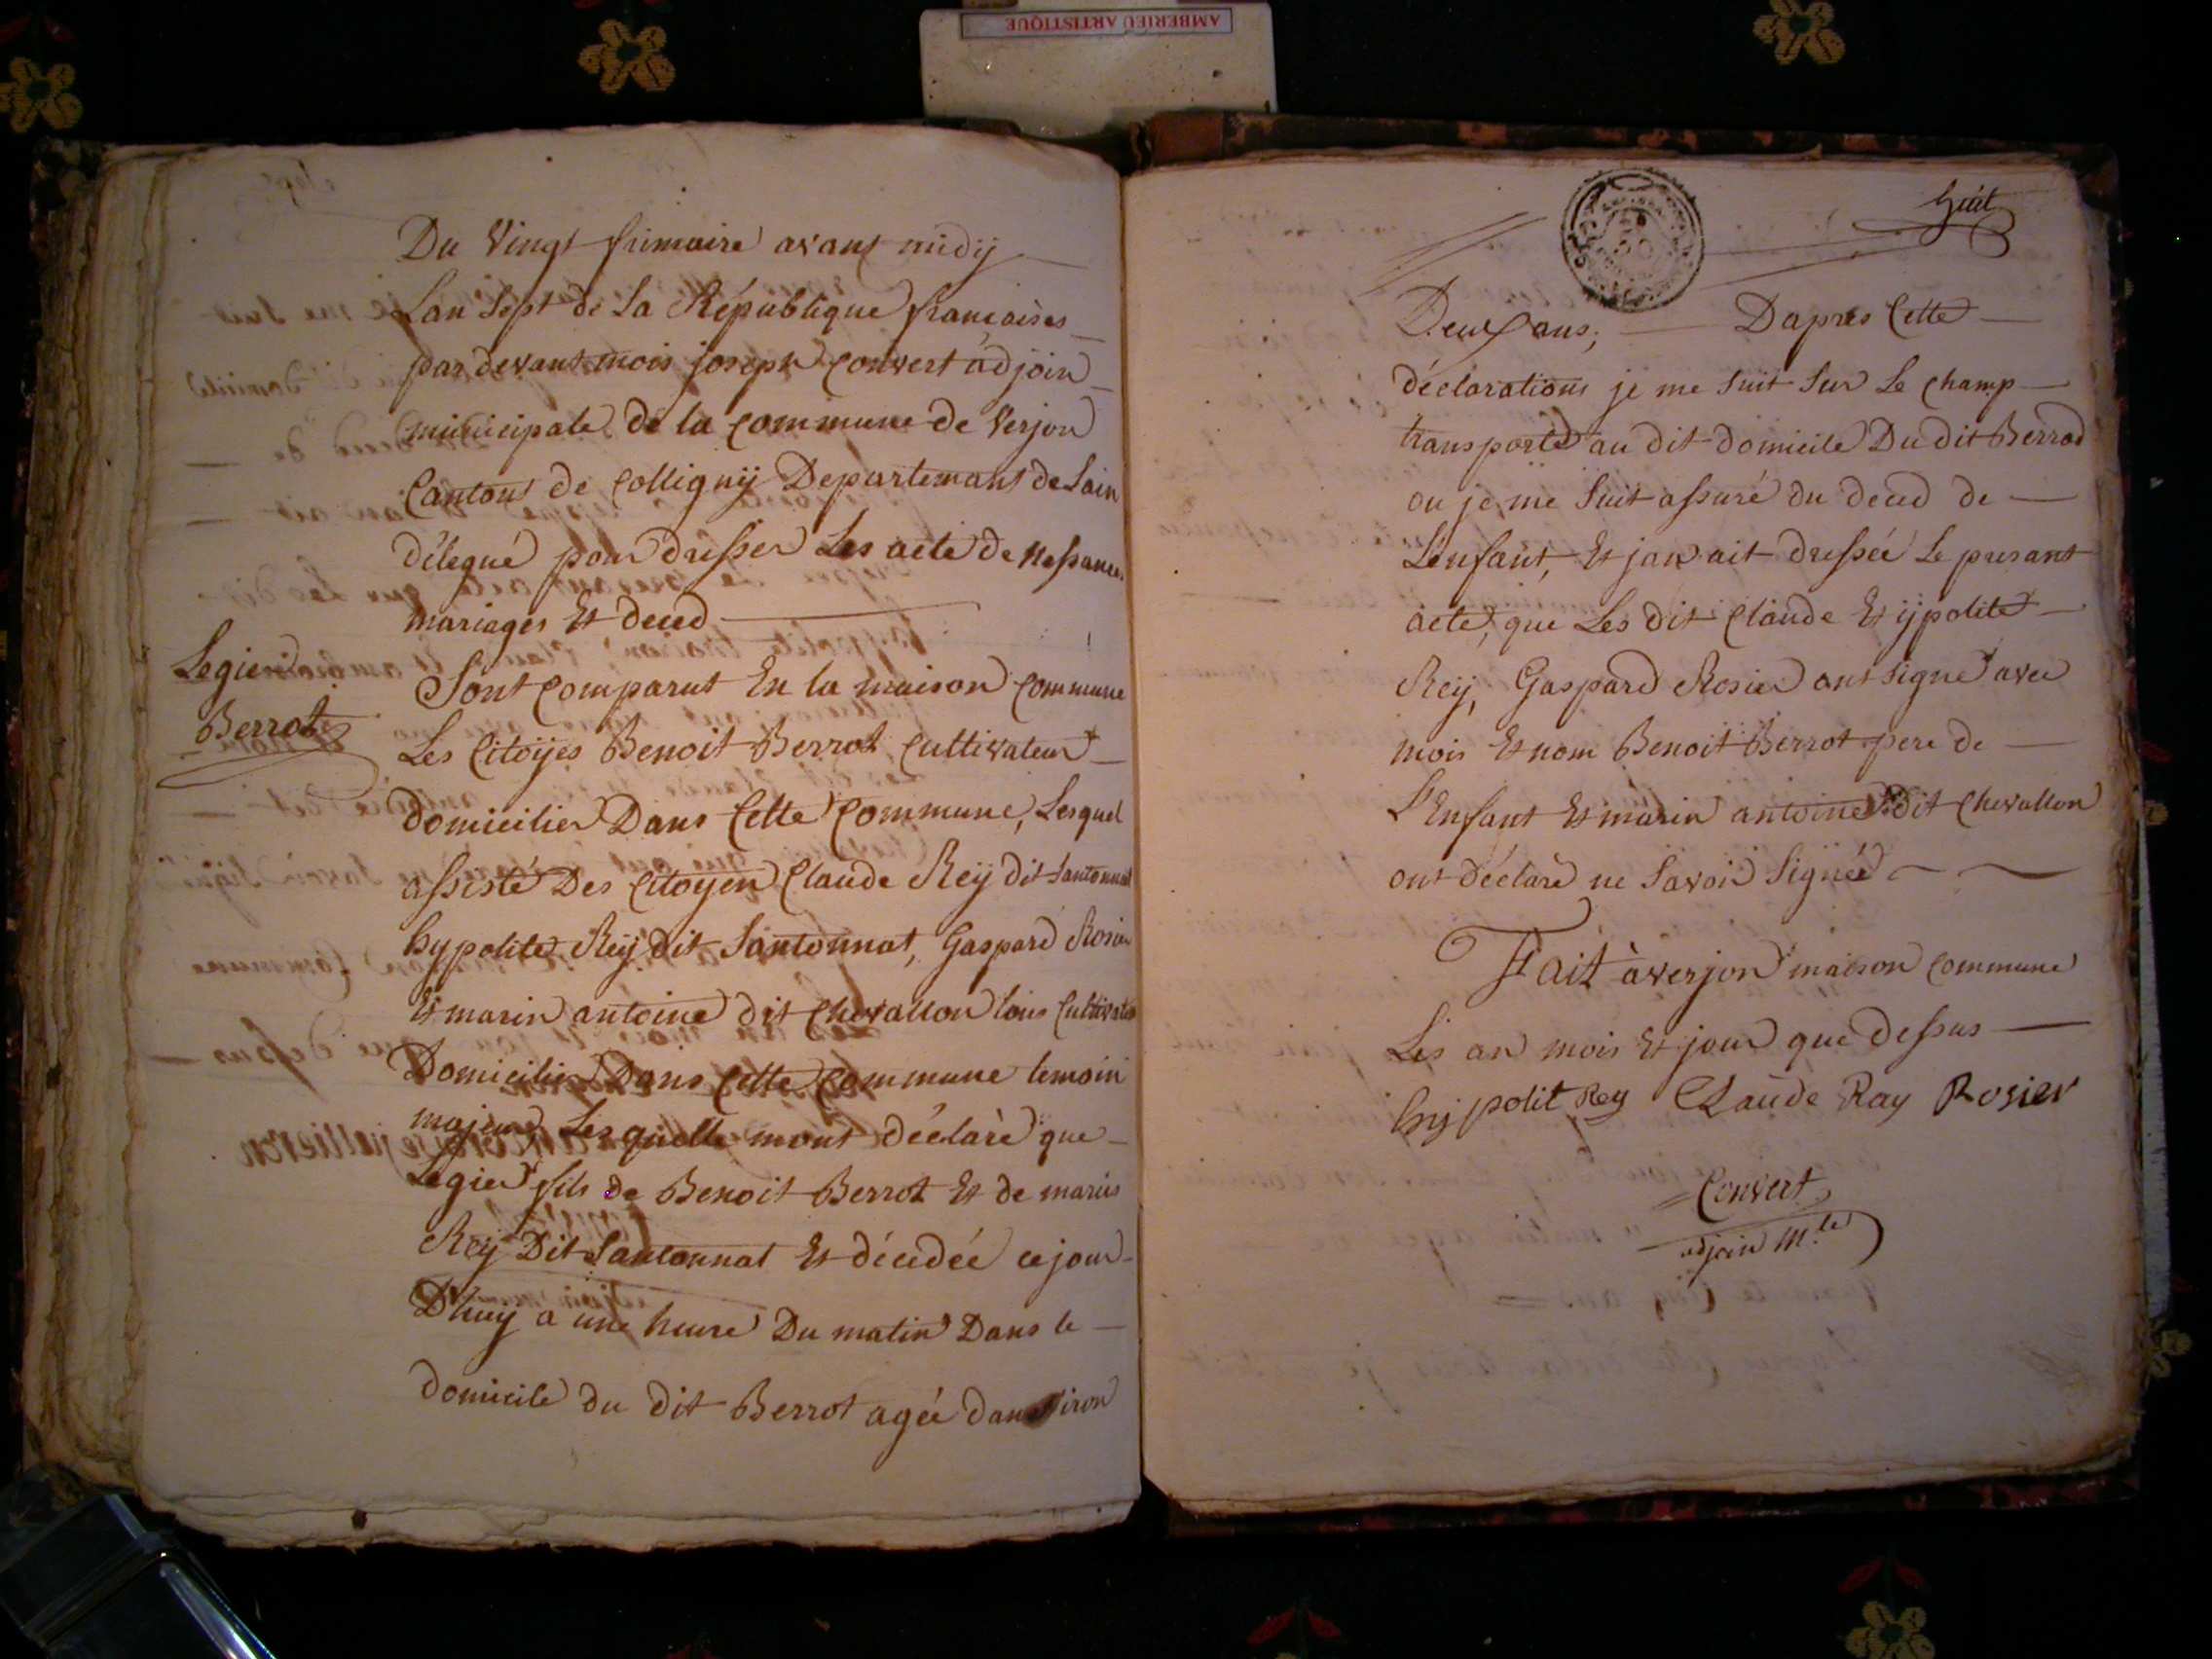 AMBERIEU ARTISTIQUE
Du Vingt frimaire avant midÿ
Lan Sept de La République françaises
par devant mois joseph Convert adjoin
municipale de la Commune de Verjon
Cantont de Collignÿ Departemant de Lain
délegué pour dresser Les acte de nessances
mariages Et deced
Legier
Berrot
Sont Comparut En la maison Commune
Les Citoÿes Benoit Berrot Cultivateur
domicilier Dans Cette Commune, Lesquel
assisté Des Citoyen Claude Reÿ dit Santonnat
hypolite Reÿ dit Santonnat, Gaspard Rosier
Et marin antoine dit Chevallon tous Cultivateur
Domicilier Dans Cette Commune temoin
majeure Lesquelle mont déclaré que
Legier fils de Benoit Berrot Et de marie
Reÿ Dit Santonnat Et décedée ce jour
Dhuy a une heure Du matin Dans le
domicile du dit Berrot agée danviron
huit
Deux ans; D'apres Cette
déclarations je me suit Sur Le Champ
transporté au dit domicile Du dit Berrod
ou je me Suit assuré du deced de
Lenfant, Et jan ait dressée Le presant
acte, que Les dit Claude Et ÿpolite
Reÿ, Gaspard Rosier ont signé avec
mois Et nom Benoit Berrot pere de
L'Enfant Et marin antoine dit Chevallon
ont déclaré ne Savoir Signée
Fait à verjon maison Commune
Les an mois Et jour que dessus
hypolit Rey Claude Ray Rosier
Convert
adjoin M.le